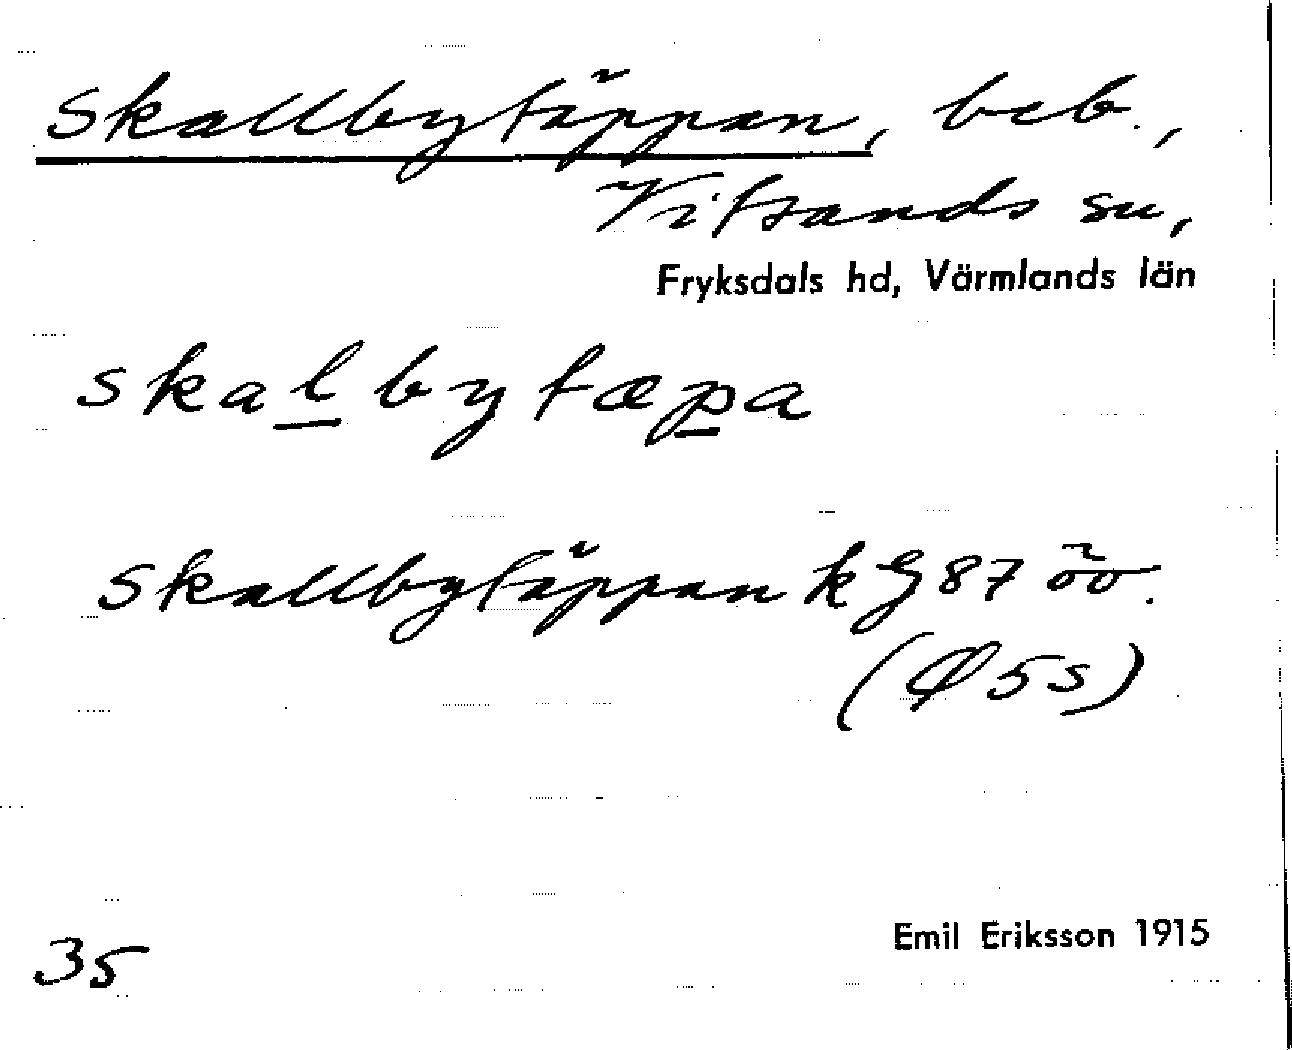 Skallbytäppan, beb.,
Vitsands sn,
Fryksdals hd, Värmlands län
skalbytæpa
Skallbytäppan k G87 öv.
(Ø 5s)
Emil Eriksson 1915
35